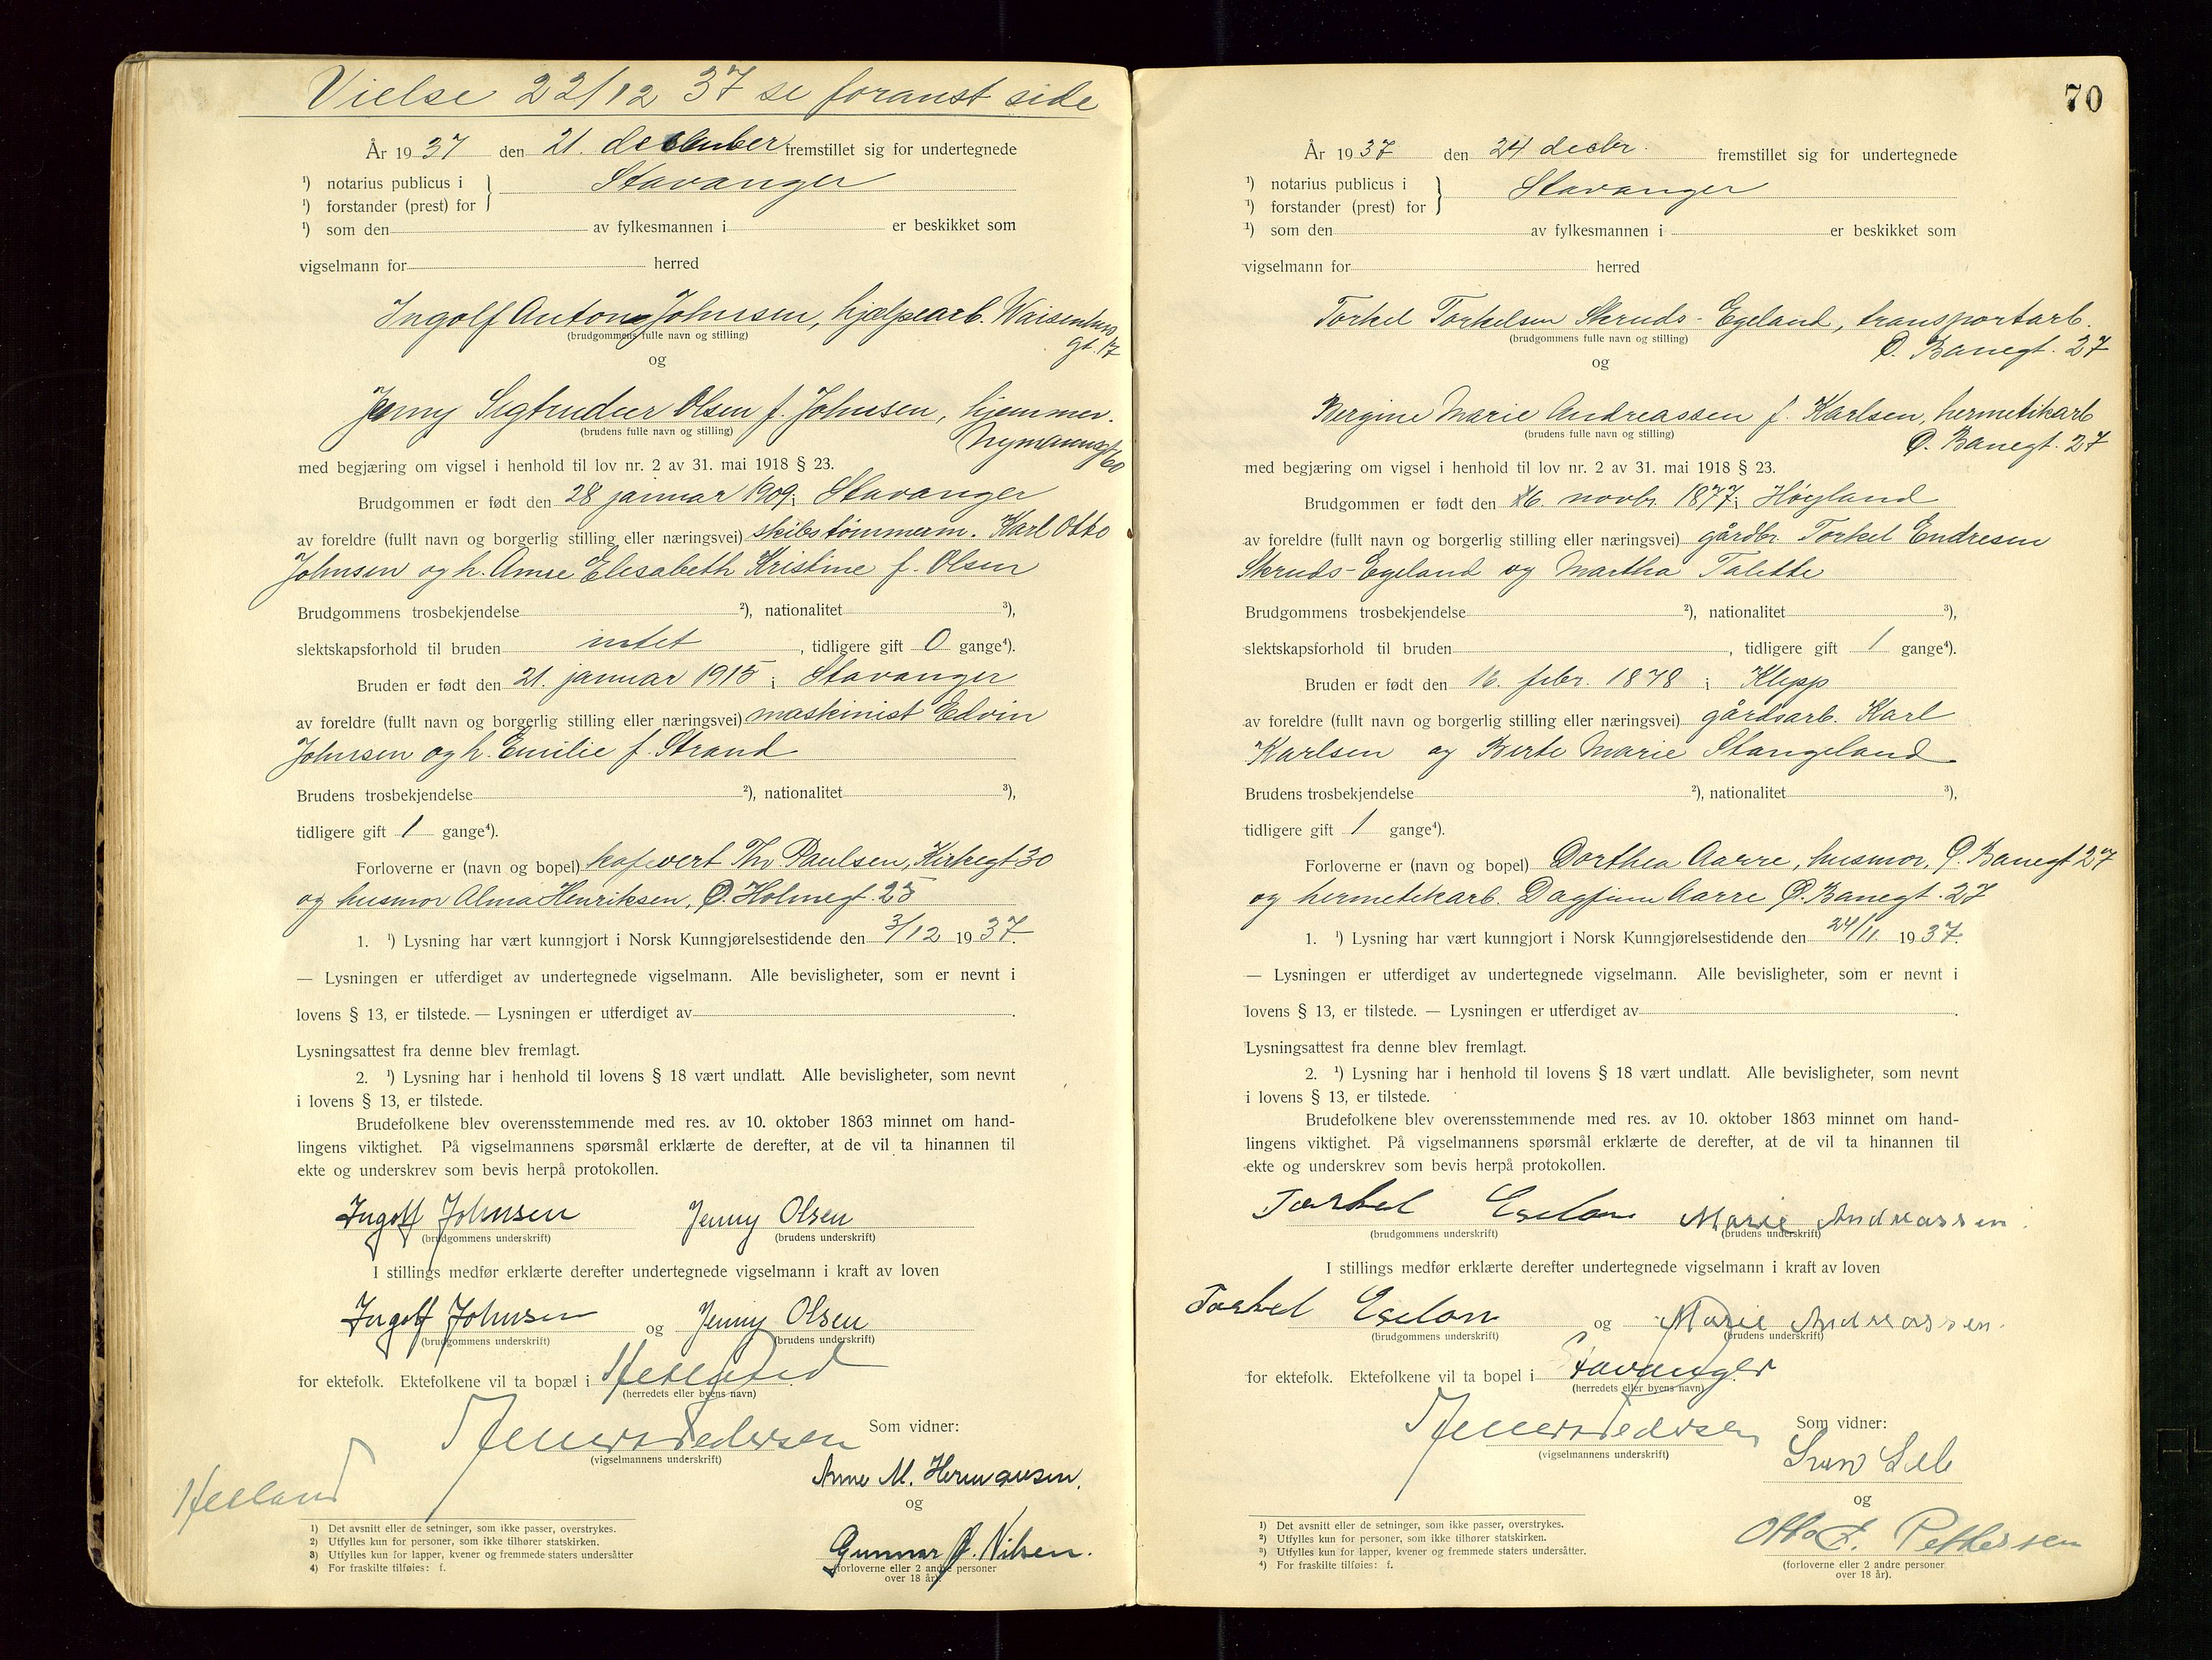 Vielse 22/12 37 se foranst side
År 1937 den 21. december fremstillet sig for undertegnede
¹) notarius publicus i } Stavanger
¹) forstander (prest) for
¹) som den av fylkesmannen i er beskikket som
vigselmann for herred
Ingolf Anton Johnsen, hjelpearb. Waisenhus
gt. 17
(brudgommens fulle navn og stilling)
og
Jenny Olsen f. Johnsen, hjemmev.
(brudens fulle navn og stilling)
Nymannsgt 60
med begjæring om vigsel i henhold til lov nr. 2 av 31. mai 1918 § 23.
Brudgommen er født den 28 januar 1909 i Stavanger
av foreldre (fullt navn og borgerlig stilling eller næringsvei) skibstömmerm. Karl Otto
Johnsen og h. Anne Elisabeth Kristine f. Olsen
Brudgommens trosbekjendelse ²), nationalitet ³),
slektskapsforhold til bruden intet, tidligere gift 0 gange⁴).
Bruden er født den 21. januar 1915 i Stavanger
av foreldre (fullt navn og borgerlig stilling eller næringsvei) maskinist Edvin
Johnsen og h. Emilie f. Strand
Brudens trosbekjendelse ²), nationalitet ³),
tidligere gift 1 gange⁴).
Forloverne er (navn og bopel) kafevert Th. Paulsen, Kirkegt 30
og husmor Alma Henriksen, Ø. Holmegt. 25
1. ¹) Lysning har vært kunngjort i Norsk Kunngjørelsestidende den 3/12 1937.
— Lysningen er utferdiget av undertegnede vigselmann. Alle bevisligheter, som er nevnt i
lovens § 13, er tilstede. — Lysningen er utferdiget av .
Lysningsattest fra denne blev fremlagt.
2. ¹) Lysning har i henhold til lovens § 18 vært undlatt. Alle bevisligheter, som nevnt
i lovens § 13, er tilstede.
Brudefolkene blev overensstemmende med res. av 10. oktober 1863 minnet om hand-
lingens viktighet. På vigselmannens spørsmål erklærte de derefter, at de vil ta hinannen til
ekte og underskrev som bevis herpå protokollen.
Ingolf Johnsen Jenny Olsen
(brudgommens underskrift) (brudens underskrift)
I stillings medfør erklærte derefter undertegnede vigselmann i kraft av loven
Ingolf Johnsen og Jenny Olsen
(brudgommens underskrift) (brudens underskrift)
for ektefolk. Ektefolkene vil ta bopæl i Hetland
(herredets eller byens navn)
Som vidner:
(vigselmannens underskrift)
Anne M. Hermansen.
og
Gunnar Ø. Nilsen.
(forloverne eller 2 andre personer
over 18 år).
1) Det avsnitt eller de setninger, som ikke passer, overstrykes.
2) Utfylles kun for personer, som ikke tilhører statskirken.
3) Utfylles kun for lapper, kvener og fremmede staters undersåtter
4) For fraskilte tilføies: f.
70
År 1937 den 24 decbr. fremstillet sig for undertegnede
¹) notarius publicus i } Stavanger
¹) forstander (prest) for
¹) som den av fylkesmannen i er beskikket som
vigselmann for herred
Torkel Torkelsen Skruds-Egeland, transportarb.
(brudgommens fulle navn og stilling)
Ø. Banegt. 27
og
Bergine Marie Andreassen f. Karlsen, hermetikarb
(brudens fulle navn og stilling)
Ø. Banegt. 27
med begjæring om vigsel i henhold til lov nr. 2 av 31. mai 1918 § 23.
Brudgommen er født den 26. novbr. 1877 i Høyland
av foreldre (fullt navn og borgerlig stilling eller næringsvei) gårdbr. Torkel Endresen
Skruds-Egeland og Martha Talette
Brudgommens trosbekjendelse ²), nationalitet ³),
slektskapsforhold til bruden , tidligere gift 1 gange⁴).
Bruden er født den 16. febr. 1878 i Klepp
av foreldre (fullt navn og borgerlig stilling eller næringsvei) gårdsarb. Karl
Karlsen og Berte Marie Stangeland
Brudens trosbekjendelse ²), nationalitet ³),
tidligere gift 1 gange⁴).
Forloverne er (navn og bopel) Dorthea Aarre, husmor, Ø. Banegt 27
og hermetikarb. Dagfinn Aarre Ø. Banegt. 27
1. ¹) Lysning har vært kunngjort i Norsk Kunngjørelsestidende den 24/11 1937.
— Lysningen er utferdiget av undertegnede vigselmann. Alle bevisligheter, som er nevnt i
lovens § 13, er tilstede. — Lysningen er utferdiget av .
Lysningsattest fra denne blev fremlagt.
2. ¹) Lysning har i henhold til lovens § 18 vært undlatt. Alle bevisligheter, som nevnt
i lovens § 13, er tilstede.
Brudefolkene blev overensstemmende med res. av 10. oktober 1863 minnet om hand-
lingens viktighet. På vigselmannens spørsmål erklærte de derefter, at de vil ta hinannen til
ekte og underskrev som bevis herpå protokollen.
Torkel Marie Andreassen.
(brudgommens underskrift) (brudens underskrift)
I stillings medfør erklærte derefter undertegnede vigselmann i kraft av loven
Torkel og Marie Andreassen.
(brudgommens underskrift) (brudens underskrift)
for ektefolk. Ektefolkene vil ta bopel i Stavanger
(herredets eller byens navn)
Som vidner:
(vigselmannens underskrift)
og
Otto Pettersen
(forloverne eller 2 andre personer
over 18 år).
1) Det avsnitt eller de setninger, som ikke passer, overstrykes.
2) Utfylles kun for personer, som ikke tilhører statskirken.
3) Utfylles kun for lapper, kvener og fremmede staters undersåtter.
4) For fraskilte tilføies: f.